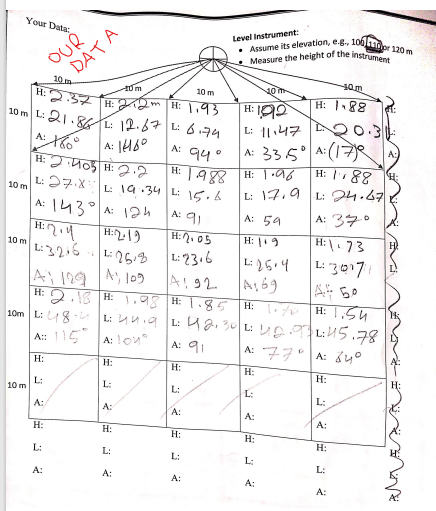 Your Data:
OUR
DATA
Level Instrument:
• Assume its elevation, e.g., 100, 110 or 120 m
• Measure the height of the instrument
10 m 10 m 10 m 10 m 10 m
H: 2.32 H: 2.2m H: 1.93 H: 1.92 H: 1.88 H:
10 m L: 21.86 L: 12.67 L: 6.74 L: 11.47 L: 20.31 L:
A: 160° A: 146° A: 94° A: 33.5° A: (17)° A:
H: 2.403 H: 2.2 H: 1.988 H: 1.96 H: 1.88 H:
10 m L: 27.8 L: 19.34 L: 15.6 L: 17.9 L: 24.67 L:
A: 143° A: 124 A: 91 A: 59 A: 37° A:
H: 2.4 H: 2.19 H: 2.05 H: 1.9 H: 1.73 H:
10 m L: 32.6 L: 25.8 L: 23.6 L: 25.4 L: 30.7 L:
A: 129 A: 109 A: 92 A: 69 A: 50
H: 2.18 H: 1.98 H: 1.85 H: H: 1.54 H:
10m L: 48.4 L: 44.9 L: 42.30 L: 42.93 L: 45.78 L:
A:: 115° A: 104° A: 91 A: 77° A: 64° A:
H: H: H: H: H: H:
10 m L: L: L: L: L: L:
A: A: A: A: A: A:
H: H: H: H: H: H:
L: L: L: L: L: L:
A: A: A: A: A: A: